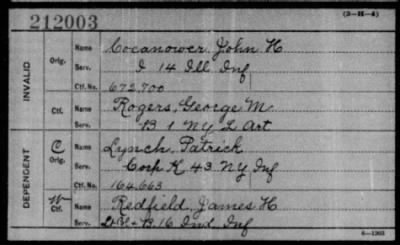 (3-H-4)
212003
INVALID
Orig.
Name Cocanower, John H
Serv. I 14 Ill Inf
Ctf. No. 672,700
Ctf.
Name Rogers, George M.
Serv. B 1 NY L Art
DEPENDENT
C
Orig.
Name Lynch, Patrick
Serv. Corp K 43 NY Inf
Ctf. No. 164,663
W
Ctf.
Name Redfield, James H
Serv. B. 16 Ind. Inf
6-1903